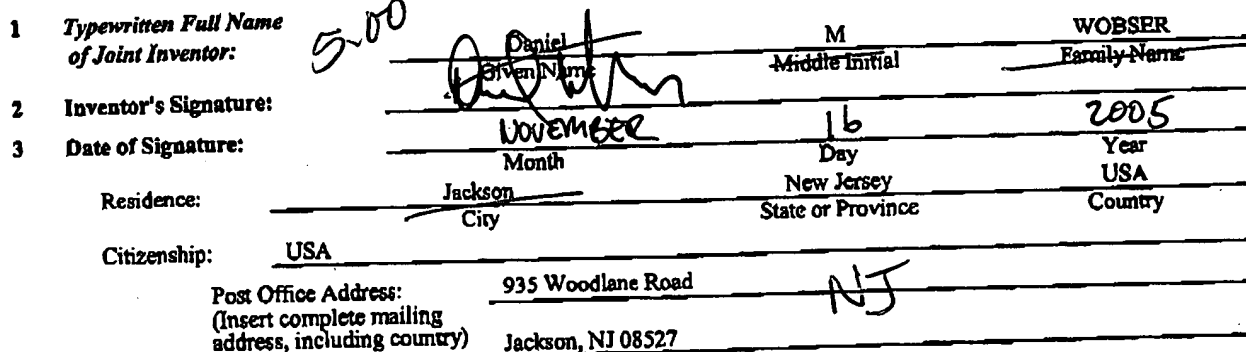 1 Typewritten Full Name of Joint Inventor: 5-00 Daniel M WOBSER
Given Name Middle Initial Family Name
2 Inventor's Signature:
3 Date of Signature: NOVEMBER 16 2005
Month Day Year
Residence: Jackson New Jersey USA
City State or Province Country
Citizenship: USA
Post Office Address: 935 Woodlane Road NJ
(Insert complete mailing
address, including country) Jackson, NJ 08527